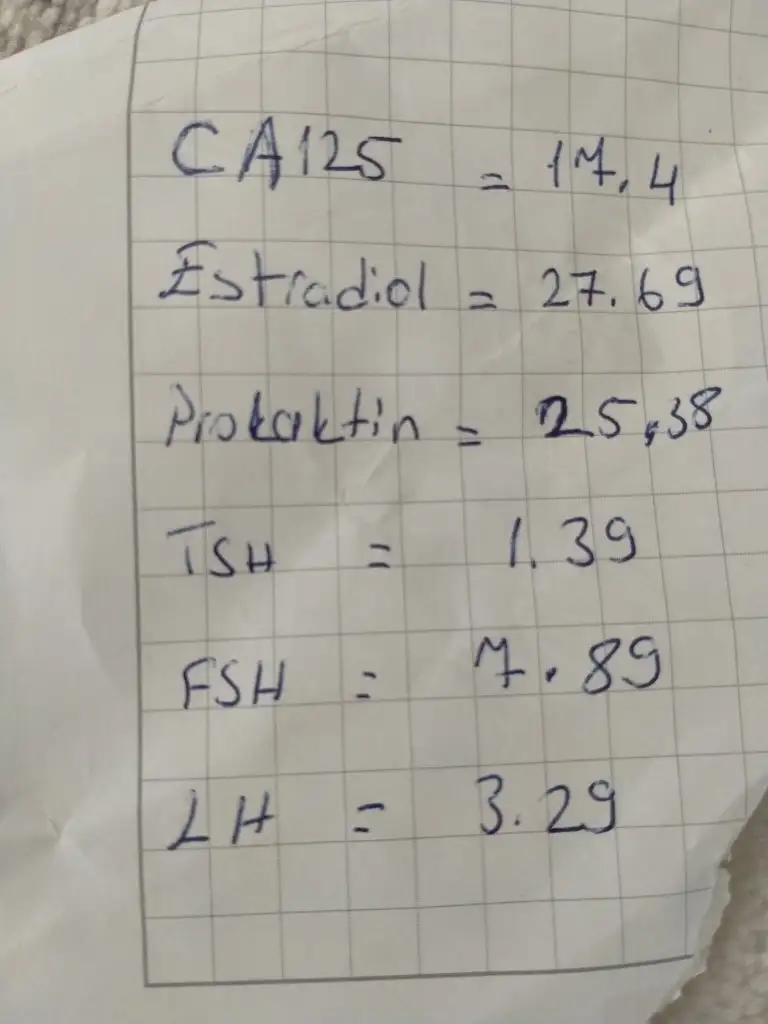 CA125 = 17.4
Estradiol = 27.69
Prolaktin = 25.38
TSH = 1.39
FSH = 7.89
LH = 3.29